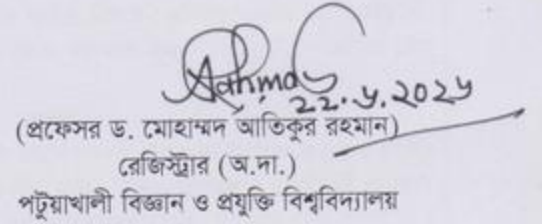 ২২.৬.২০২৬
(প্রফেসর ড. মোহাম্মদ আতিকুর রহমান)
রেজিস্ট্রার (অ.দা.)
পটুয়াখালী বিজ্ঞান ও প্রযুক্তি বিশ্ববিদ্যালয়